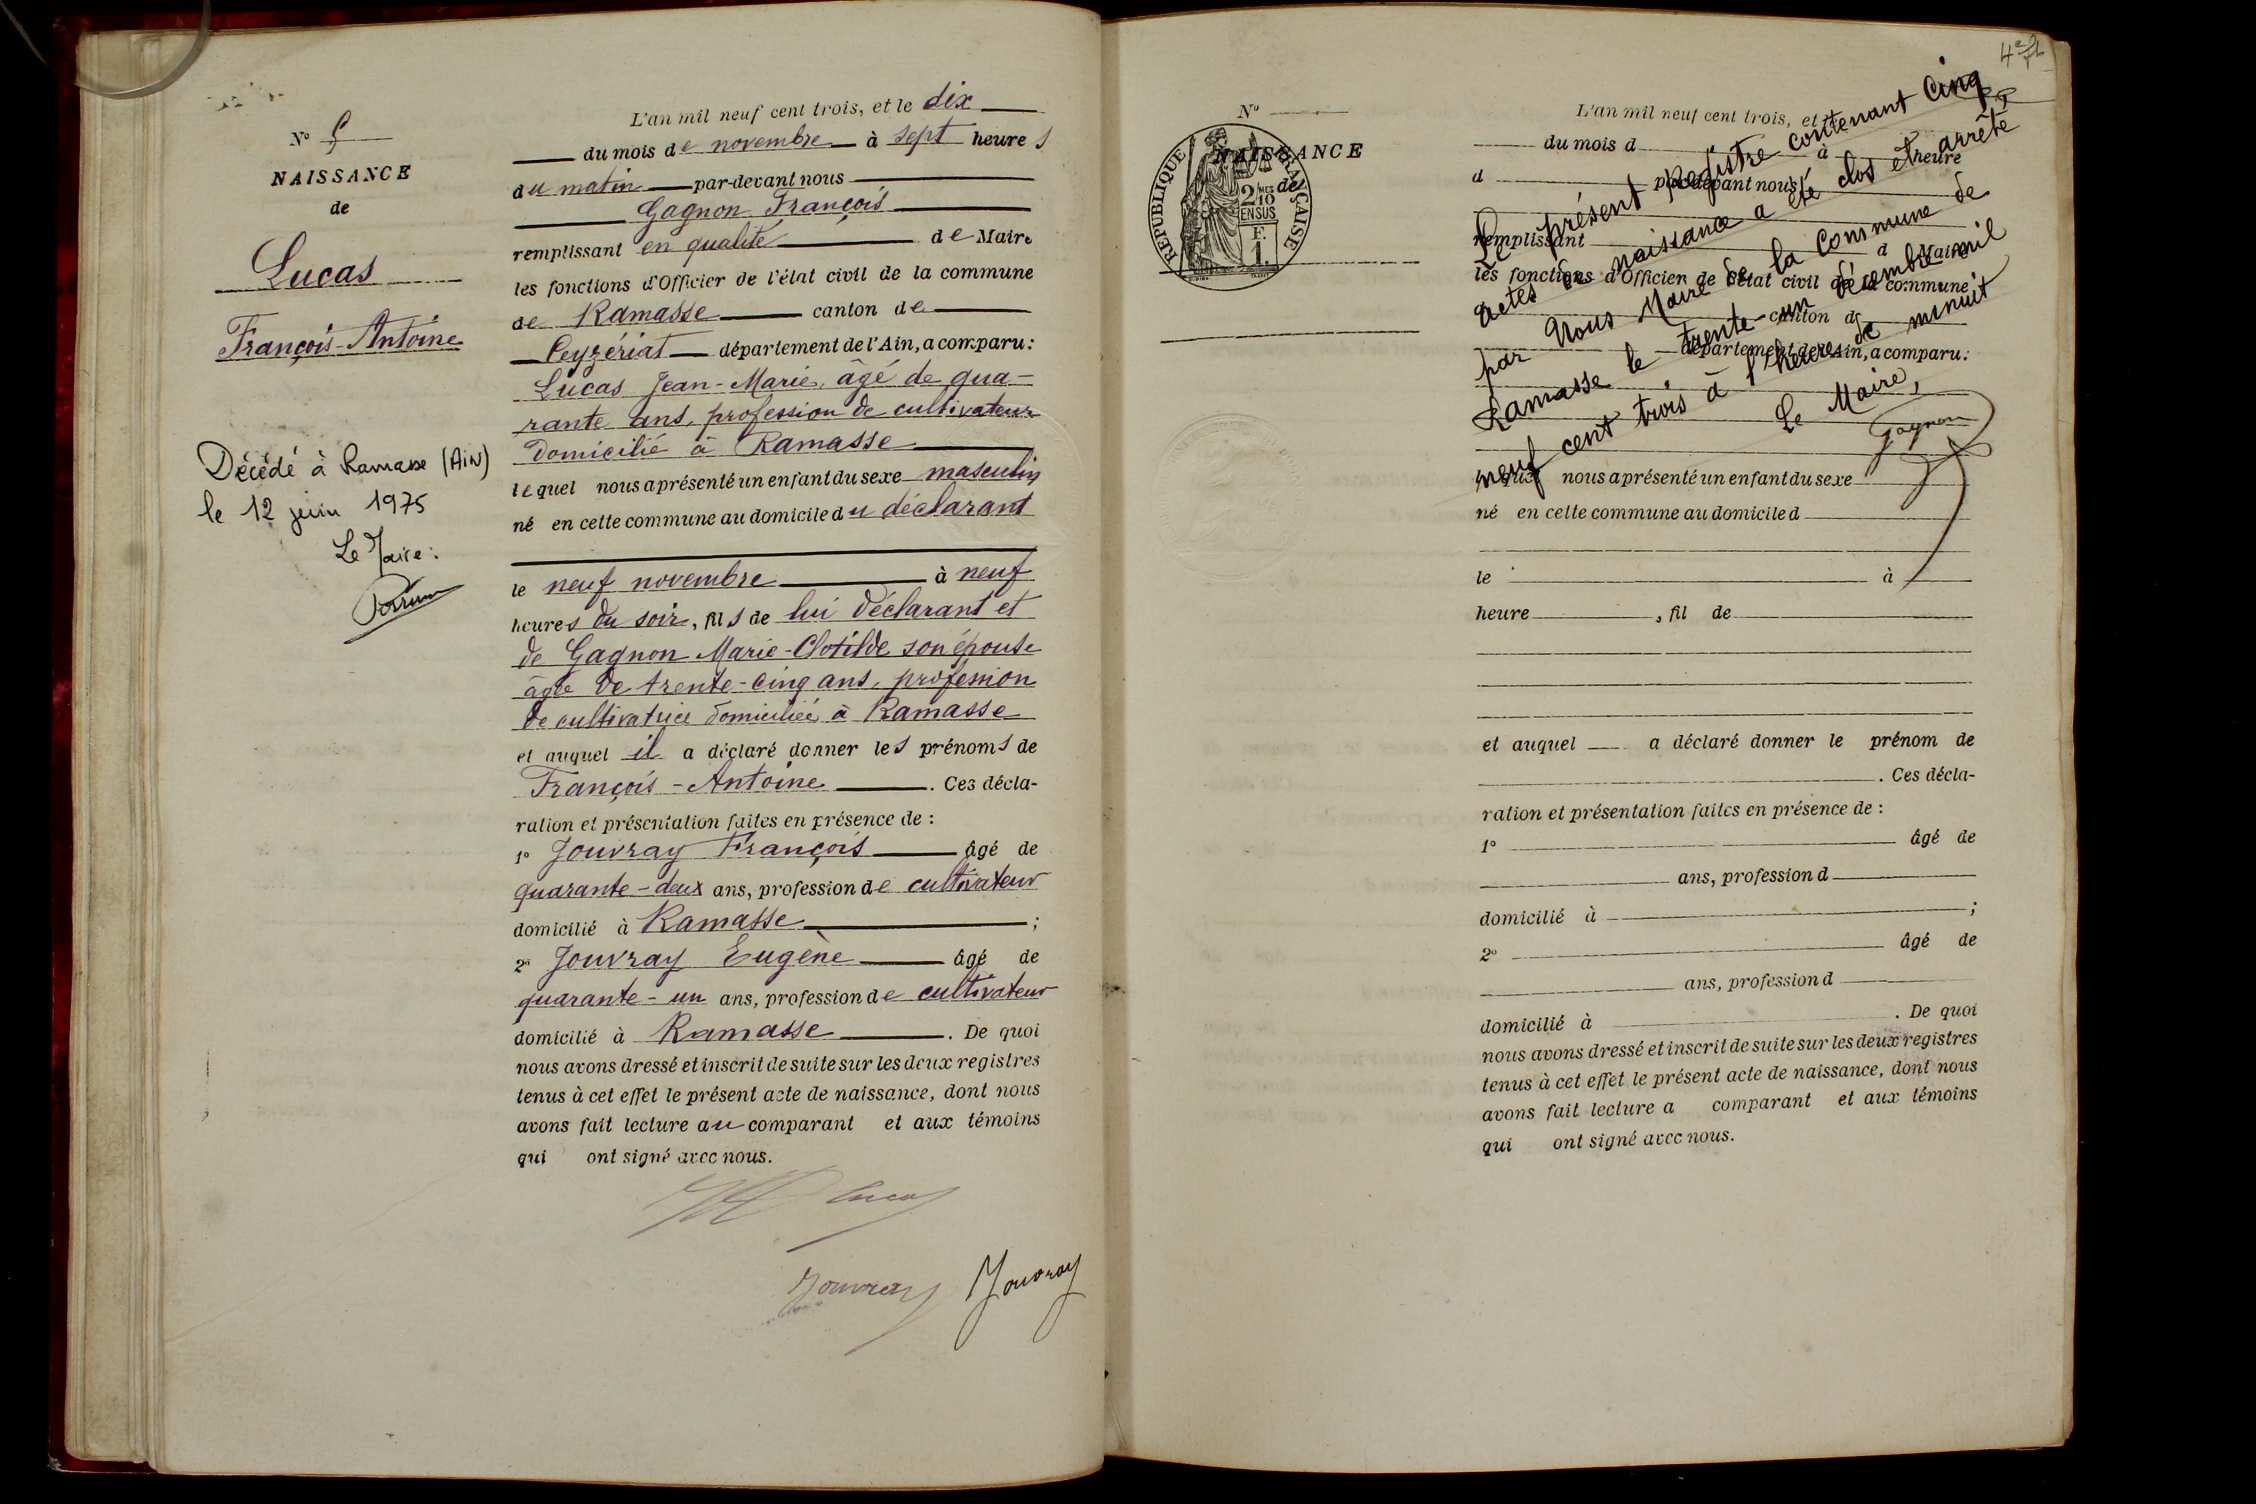 N° 5
NAISSANCE
de
Lucas
François-Antoine
Décédé à Ramasse (Ain)
le 12 juin 1975
Le Maire :
L'an mil neuf cent trois, et le dix
du mois de novembre à sept heures
du matin par-devant nous
Gagnon François
remplissant en qualité de Maire
les fonctions d'Officier de l'état civil de la commune
de Ramasse canton de
Ceyzériat département de l'Ain, a comparu :
Lucas Jean-Marie, âgé de qua-
rante ans, profession de cultivateur
domicilié à Ramasse
lequel nous a présenté un enfant du sexe masculin
né en cette commune au domicile du déclarant
le neuf novembre à neuf
heures du soir, fils de lui déclarant et
de Gagnon Marie-Clotilde son épouse
âgée de trente-cinq ans, profession
de cultivatrice domiciliée à Ramasse
et auquel il a déclaré donner les prénoms de
François-Antoine. Ces décla-
ration et présentation faites en présence de :
1° Jouvray François âgé de
quarante-deux ans, profession de cultivateur
domicilié à Ramasse ;
2° Jouvray Eugène âgé de
quarante-un ans, profession de cultivateur
domicilié à Ramasse. De quoi
nous avons dressé et inscrit de suite sur les deux registres
tenus à cet effet le présent acte de naissance, dont nous
avons fait lecture au comparant et aux témoins
qui ont signé avec nous.
Lucas
Jouvray Jouvray
N°
NAISSANCE
de
RÉPUBLIQUE FRANÇAISE
2 10 MES
EN SUS
F.
1.
L'an mil neuf cent trois, et
du mois d à heure
d par-devant nous
remplissant d Maire
les fonctions d'Officier de l'état civil de la commune
canton d
département de l'Ain, a comparu :
Le présent registre contenant cinq
actes de naissance a été clos et arrêté
par Nous Maire de la Commune de
Ramasse le trente-un décembre mil
neuf cent trois à l'heure de minuit
Le Maire,
Gagnon
lequel nous a présenté un enfant du sexe
né en cette commune au domicile d
le à
heure , fil de
et auquel a déclaré donner le prénom de
. Ces décla-
ration et présentation faites en présence de :
1° âgé de
ans, profession d
domicilié à ;
2° âgé de
ans, profession d
domicilié à . De quoi
nous avons dressé et inscrit de suite sur les deux registres
tenus à cet effet le présent acte de naissance, dont nous
avons fait lecture a comparant et aux témoins
qui ont signé avec nous.